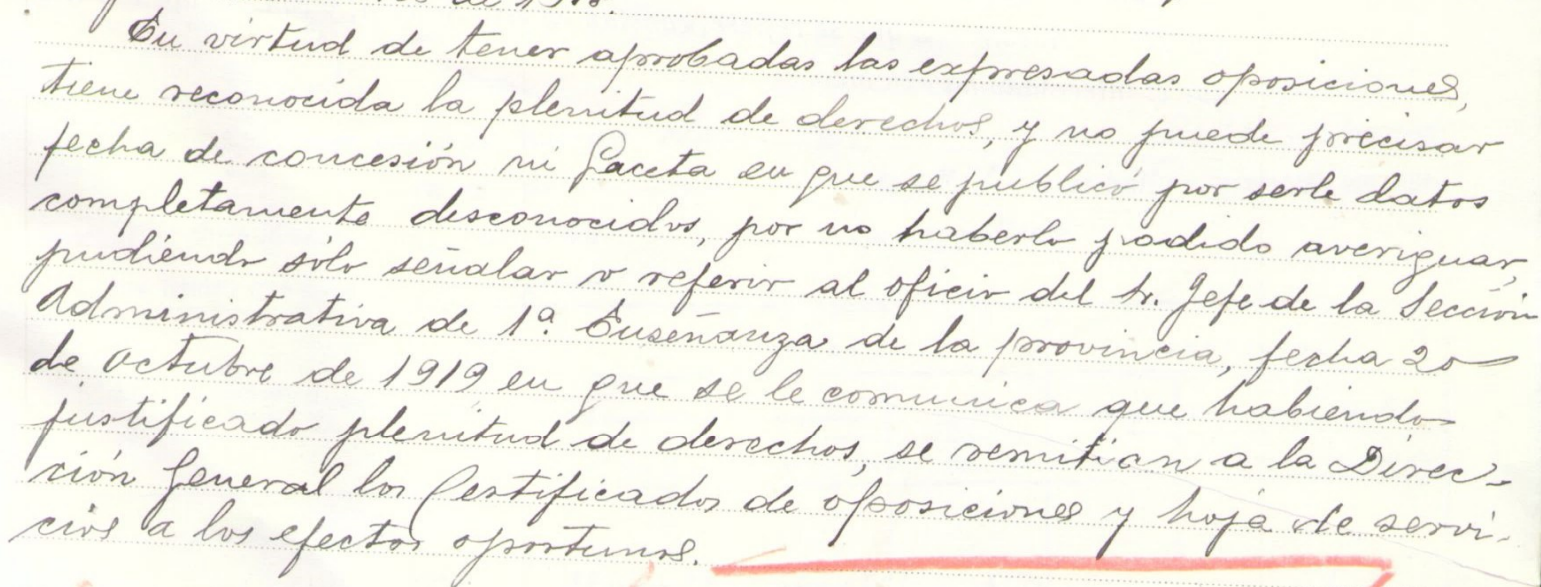 de 1918.
En virtud de tener aprobadas las expresadas oposiciones,
tiene reconocida la plenitud de derechos, y no puede precisar
fecha de concesión ni Gaceta en que se publicó por serle datos
completamente desconocidos, por no haberlo podido averiguar,
pudiendo sólo señalar o referir al oficio del Sr. Jefe de la Sección
Administrativa de 1ª. Enseñanza de la provincia, fecha 20
de Octubre de 1919 en que se le comunica que habiendo
justificado plenitud de derechos, se remitían a la Direc-
ción General los Certificados de oposiciones y hoja de servi-
cios a los efectos oportunos.